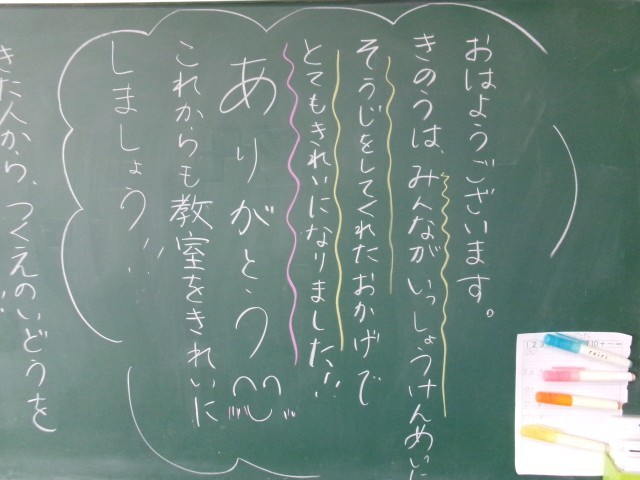 おはようございます。
きのうは、みんながいっしょうけんめいに
そうじをしてくれたおかげで
とてもきれいになりました!!
ありがとう
これからも教室をきれいに
しましょう!!
きた人から、つくえのいどうを